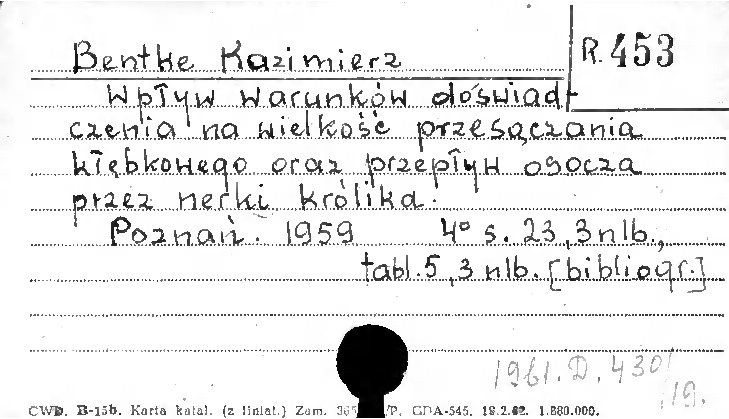 Bentke Kazimierz
R. 453
Wpływ warunków doświad-
czenia na wielkość przesączania
kłębkowego oraz przepływ osocza
przez nerki królika.
Poznań. 1959 4° s. 23, 3 nlb.,
tabl. 5, 3 nlb. [bibliogr.]
1961.D.430/
/19.
CWD. B-15b. Karta katal. (z liniat.) Zam. /P. GDA-545. 1.880.000.